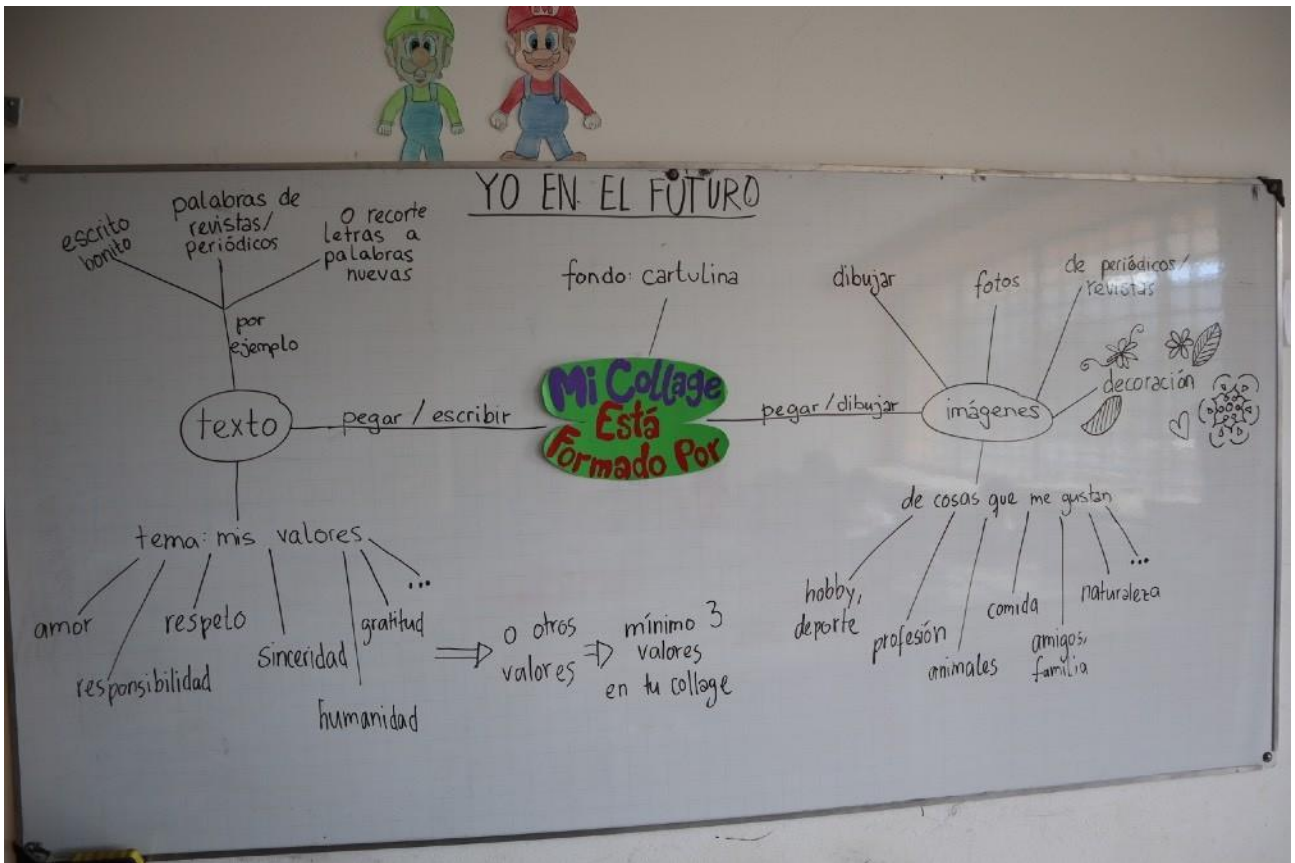 YO EN EL FUTURO
escrito
bonito
palabras de
revistas/
periódicos
o recorte
letras a
palabras
nuevas
por
ejemplo
texto
pegar / escribir
fondo: cartulina
Mi Collage
Está
Formado Por
pegar/dibujar
imágenes
dibujar
fotos
de periódicos/
revistas
decoración
tema: mis valores
amor
responsibilidad
respeto
sinceridad
humanidad
gratitud
...
o otros
valores
mínimo 3
valores
en tu collage
de cosas que me gustan
hobby,
deporte
profesión
animales
comida
amigos,
familia
naturaleza
...
L